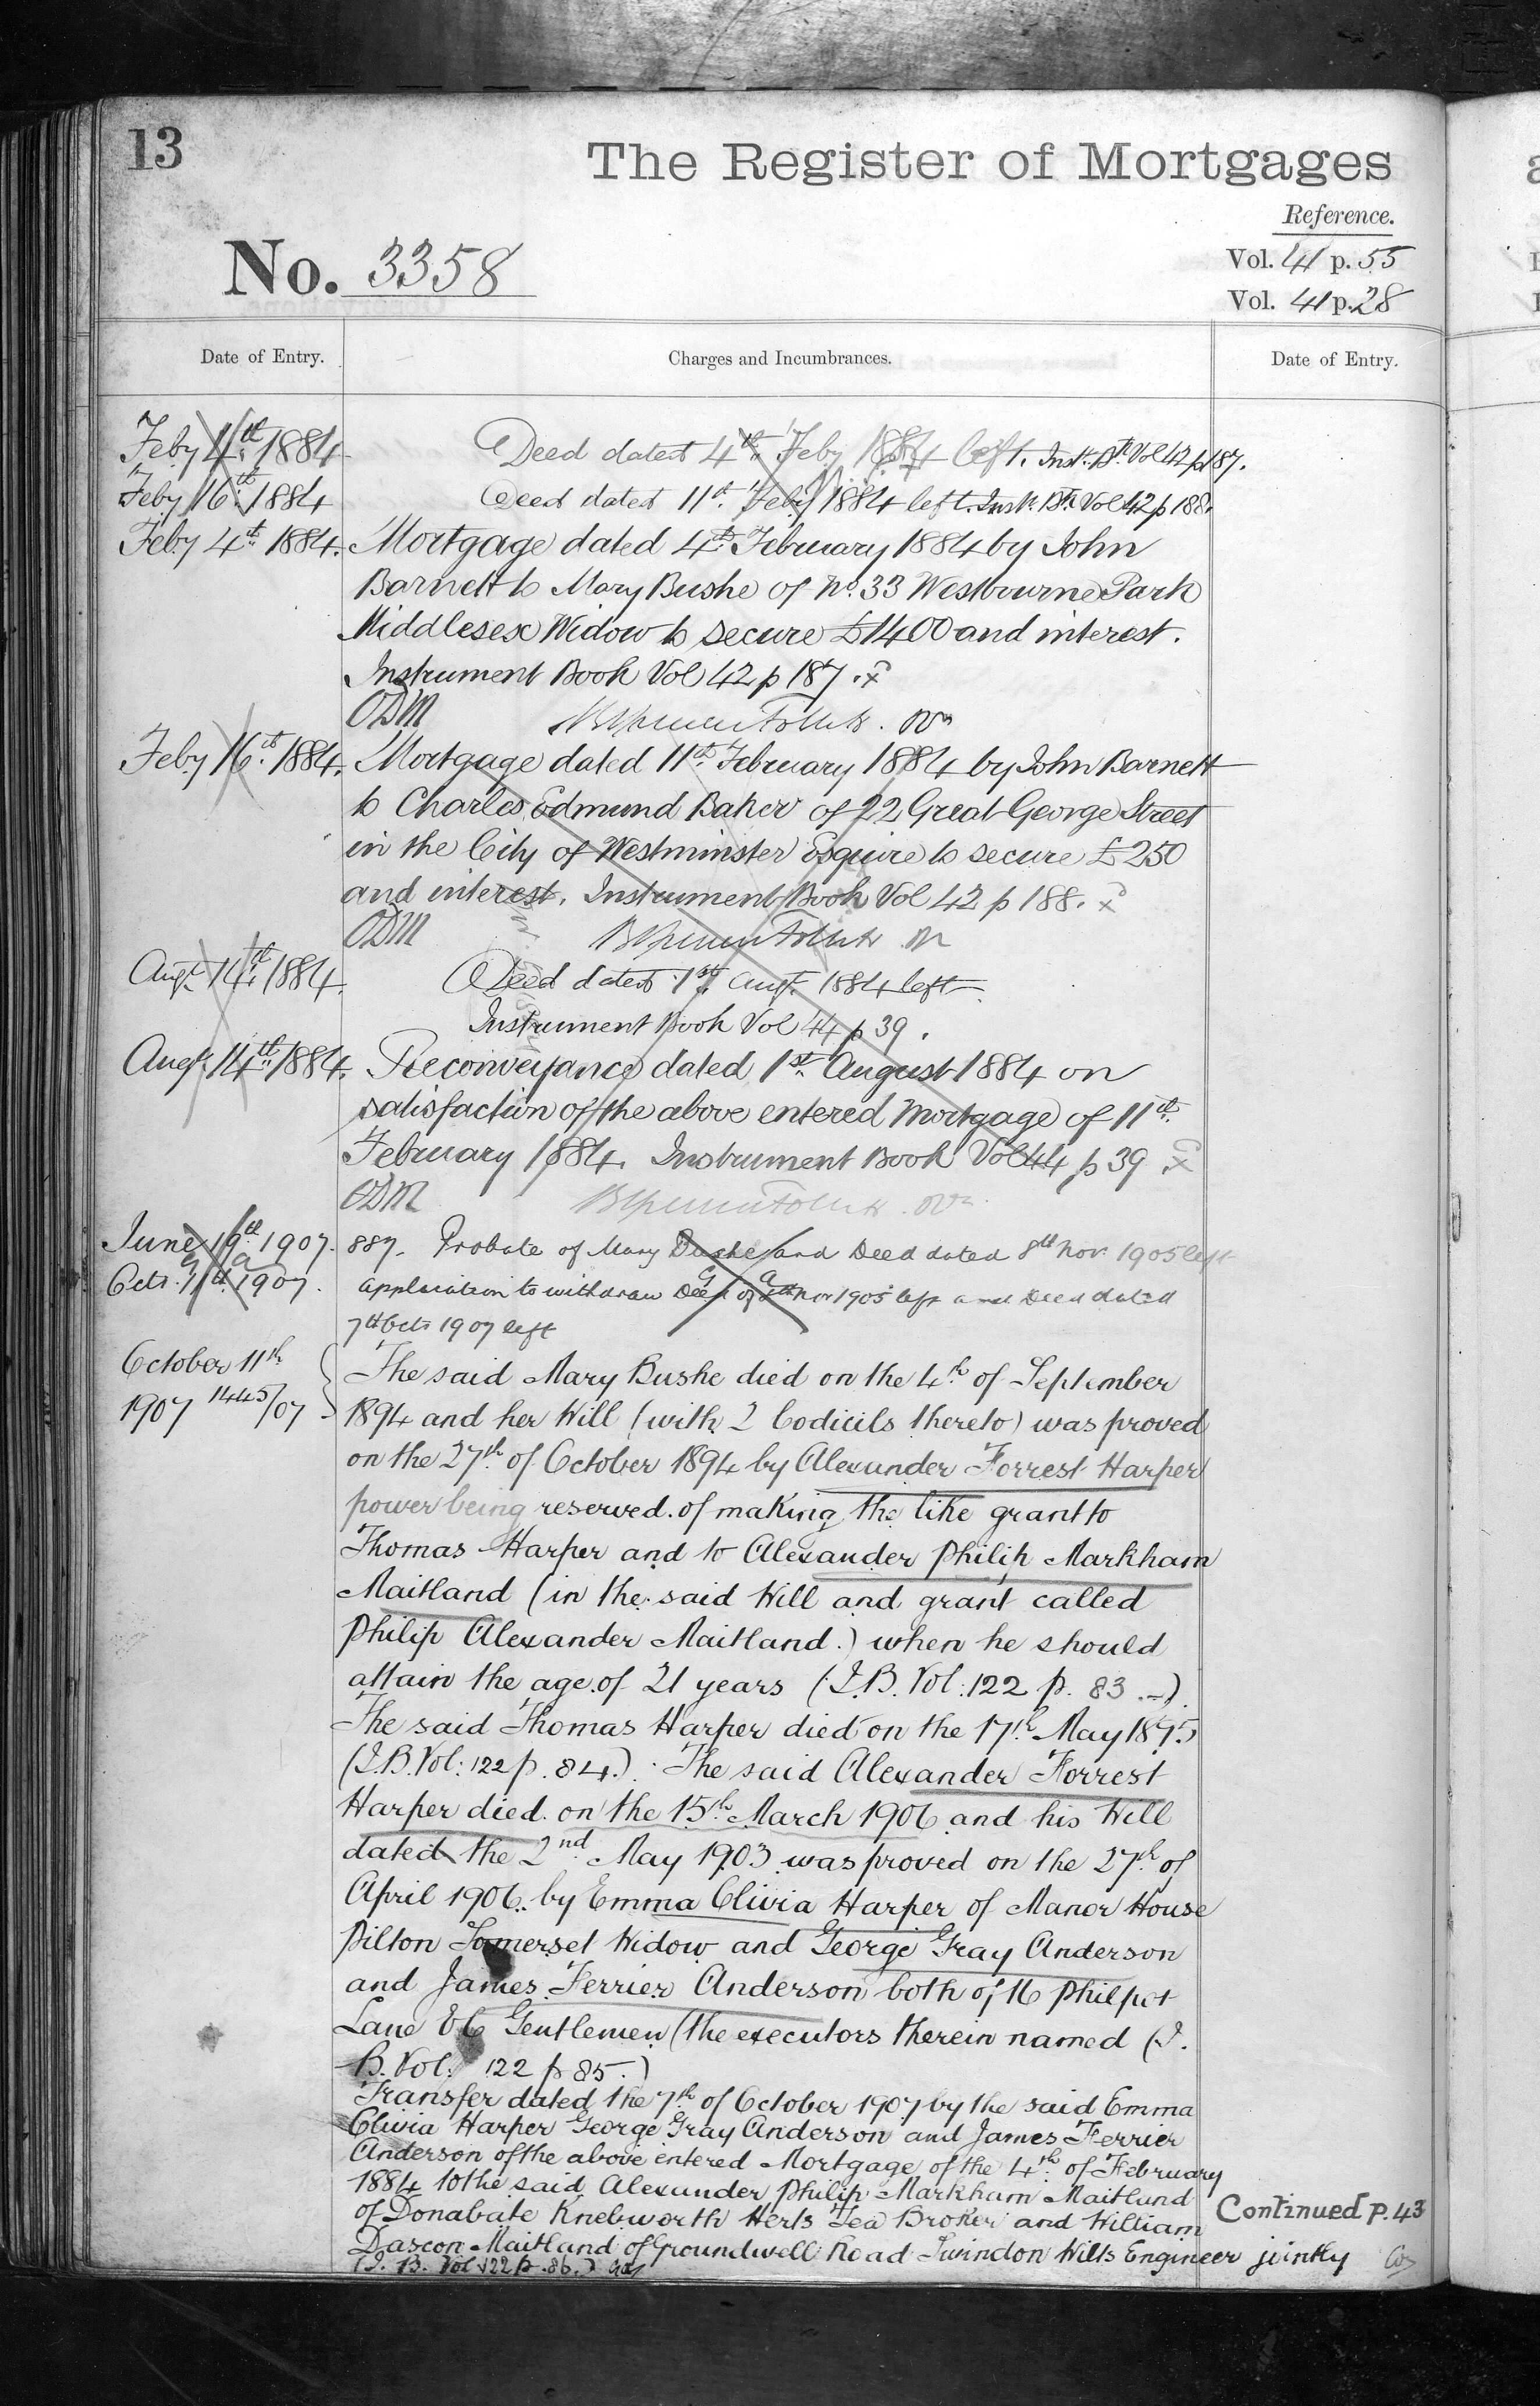 13
The Register of Mortgages
Reference.
No. 3358
Vol. 41 p. 55
Vol. 41 p. 28
Date of Entry.
Charges and Incumbrances.
Date of Entry.
Feby 4th 1884 Deed dated 4th Feby 1884 left. Inst. Bk Vol 42 p 187.
Feby 16th 1884 Deed dated 11th Feby 1884 left. Inst. Bk Vol 42 p 188.
Feby 4th 1884. Mortgage dated 4th February 1884 by John
Barnett to Mary Bushe of No. 33 Westbourne Park
Middlesex Widow to secure £1400 and interest.
Instrument Book Vol 42 p 187.
ODM
Feby 16th 1884. Mortgage dated 11th February 1884 by John Barnett
to Charles Edmund Baker of 22 Great George Street
in the City of Westminster Esquire to secure £250
and interest. Instrument Book Vol 42 p 188.
ODM
Augt. 14th 1884. Deed dated 1st Augt. 1884 left
Instrument Book Vol 44 p 39.
Augt. 14th 1884. Reconveyance dated 1st August 1884 on
satisfaction of the above entered Mortgage of 11th
February 1884. Instrument Book Vol 44 p 39
ODM
June 19th 1907. 887. Probate of Mary Bushe and Deed dated 8th Nov 1905 left
Octr. 11th 1907. Application to withdraw Deed of 8th Nov 1905 left and Deed dated
7th Octr 1907 left
October 11th The said Mary Bushe died on the 4th of September
1907 1445/07 1894 and her Will (with 2 Codicils thereto) was proved
on the 27th of October 1894 by Alexander Forrest Harper
power being reserved of making the like grant to
Thomas Harper and to Alexander Philip Markham
Maitland (in the said Will and grant called
Philip Alexander Maitland.) when he should
attain the age of 21 years (I.B. Vol: 122 p. 83.-)
The said Thomas Harper died on the 17th May 1895
(I.B. Vol: 122 p. 84.) The said Alexander Forrest
Harper died on the 15th March 1906 and his Will
dated the 2nd May 1903 was proved on the 27th of
April 1906. by Emma Olivia Harper of Manor House
Pilton Somerset Widow and George Gray Anderson
and James Ferrier Anderson both of 16 Philpot
Lane EC Gentlemen (the executors therein named (I.
B. Vol: 122 p 85.)
Transfer dated the 7th of October 1907 by the said Emma
Olivia Harper George Gray Anderson and James Ferrier
Anderson of the above entered Mortgage of the 4th of February
1884 to the said Alexander Philip Markham Maitland
of Donabate Knebworth Herts Tea Broker and William
Continued P. 43
Dascon Maitland of Groundwell Road Swindon Wilts Engineer jointly
(I. B. Vol 122 p. 86.)